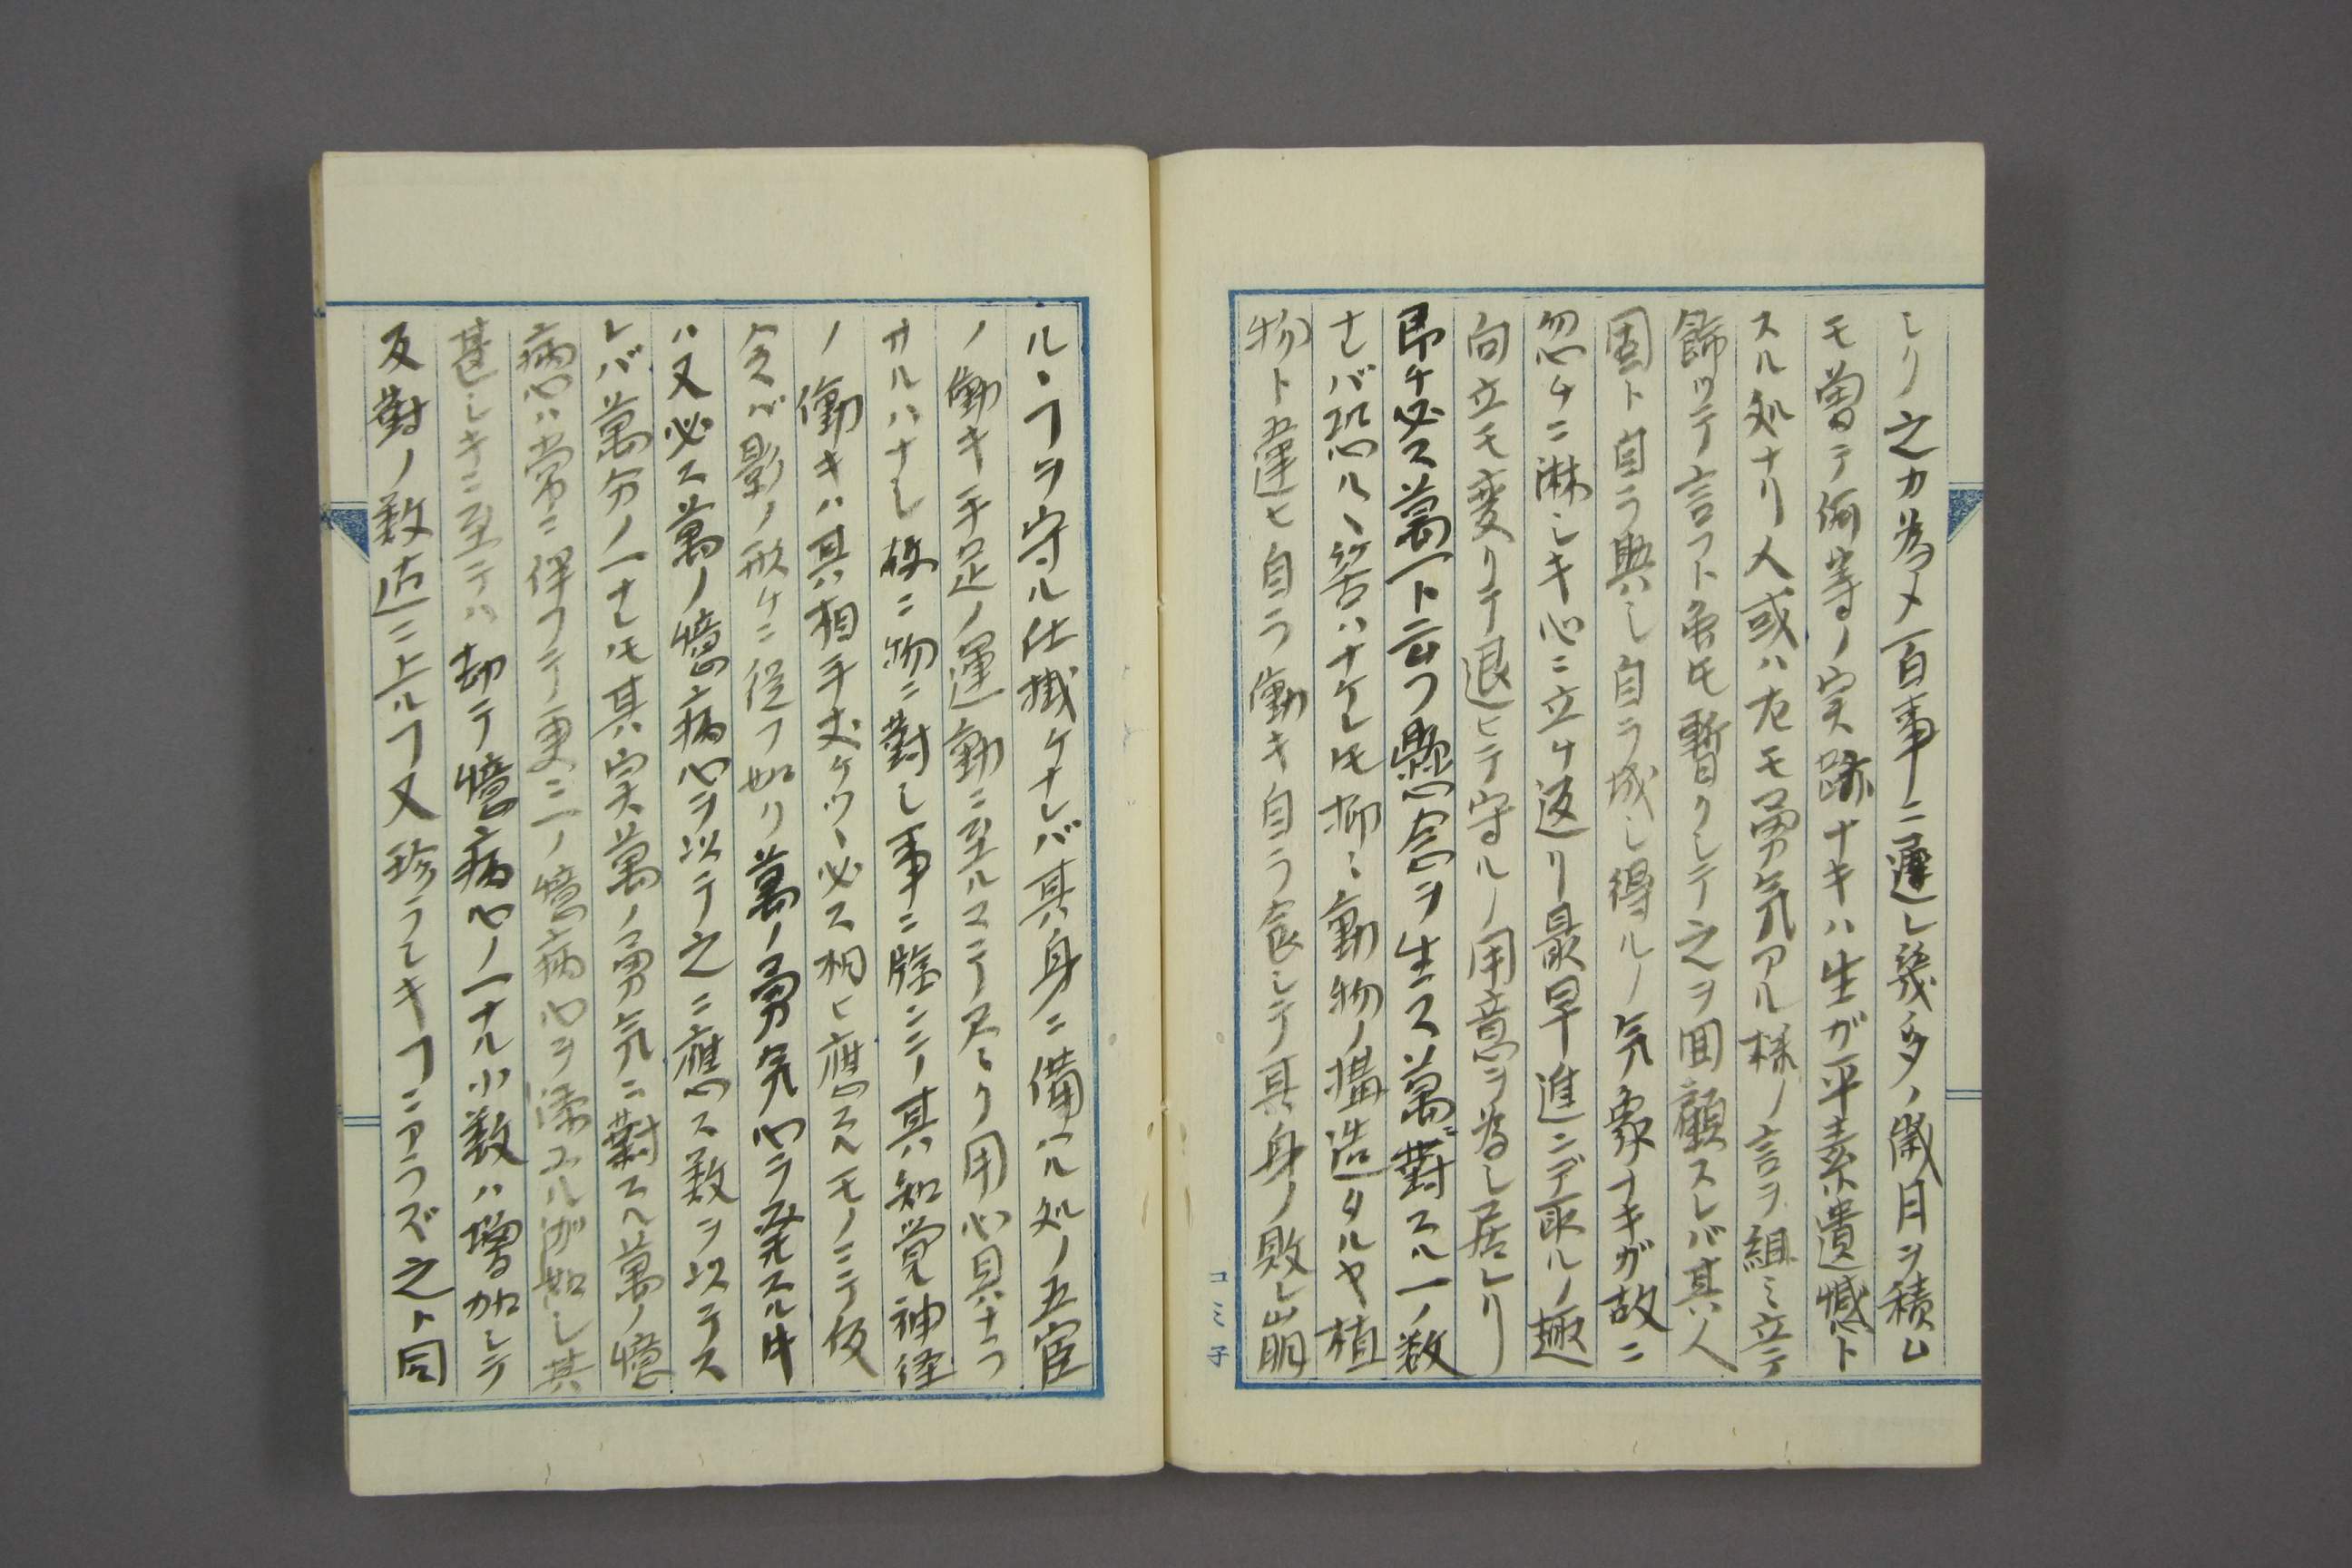 レリ之カ為メ百事ニ遲レ幾多ノ歳月ヲ積ム
モ曽テ何等ノ実跡ナキハ生ガ平素遺憾ト
スル処ナリ人或ハ左モ勇気アル様ノ言ヲ組ミ立テ
飾ツテ言フト𫉬𪜈暫クシテ之ヲ回顧スレバ其人
固ト自ラ興シ自ラ成シ得ルノ気象ナキガ故ニ
忽チニ淋シキ心ニ立チ返リ最早進ンデ取ルノ趣
向立モ変リテ退ヒテ守ルノ用意ヲ為シ居レリ
即チ必ス萬一ト云フ懸念ヲ生ス萬ニ對スル一ノ数
ナレバ恐ルヽ筈ハナケレ𪜈抑ミ動物ノ搆造タルヤ植
物ト違ヒ自ラ働キ自ラ食シテ其身ノ敗レ崩
コミ子
ルヽヿヲ守ル仕掛ケナレバ其身ニ備ハル処ノ五官
ノ働キ手足ノ運動ニ至ルマテ尽ク用心具ナラ
サルハナシ故ニ物ニ對シ事ニ臨ンテノ其知覚神経
ノ働キハ其相手丈ケツヽ必ス相ヒ應スルモノニテ仮
令バ影ノ形チニ従フ如リ萬ノ勇気心ヲ発スル牛
ハ又必ス萬ノ憶病心ヲ以テ之ニ應ス数ヲ以テス
レバ萬分ノ一ナレ𪜈其実萬ノ勇気ニ對スル萬ノ憶
病心ハ常ニ伴フテ更ニ一ノ憶病心ヲ添ユルガ如シ其
甚シキニ至テハ却テ憶病心ノ一ナル小数ハ増加シテ
反對ノ数迠ニ上ルヿ又珍ラシキヿニアラズ之ト同